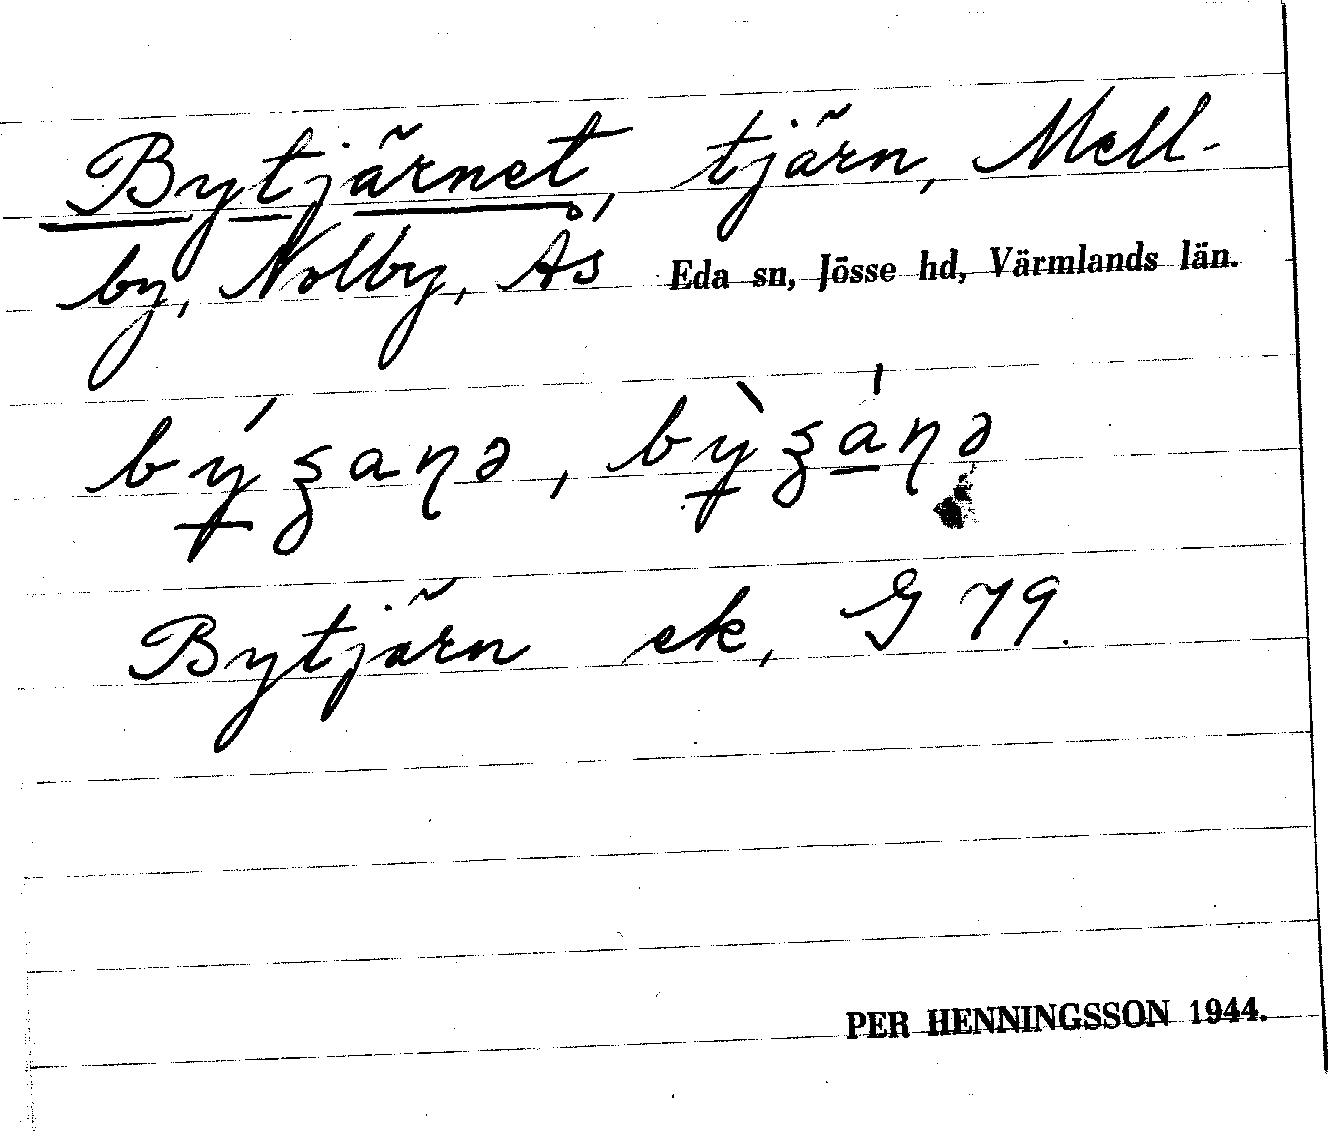 Bytjärnet, tjärn, Mell-
by, Nolby, Ås Eda sn, Jösse hd, Värmlands län.
Bytjärn ek, G 79.
PER HENNINGSSON 1944.